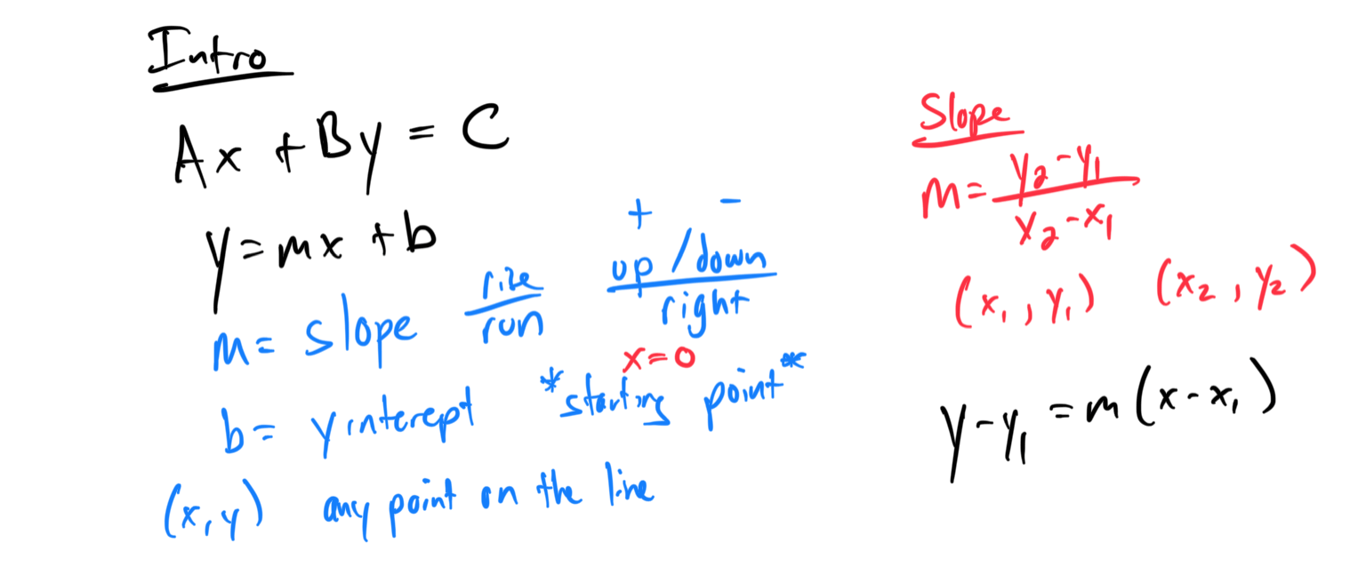 Intro
Ax + By = C
y = mx + b
m = slope rise/run + - up/down/right
x=0
b = y intercept *starting point*
(x, y) any point on the line
Slope
m = y₂-y₁/x₂-x₁
(x₁, y₁) (x₂, y₂)
y-y₁ = m(x-x₁)